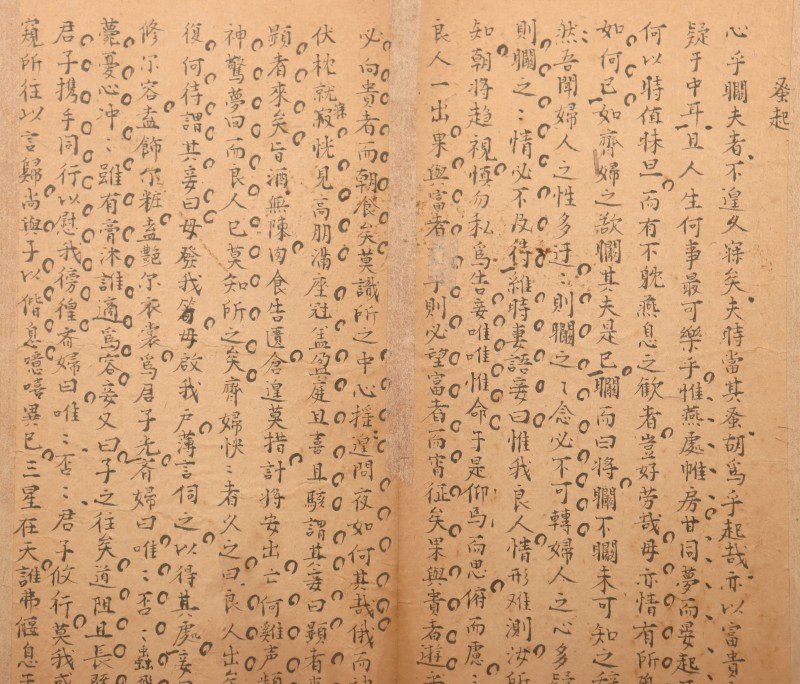 蚤起
心乎瞯夫者不遑夕寐矣夫時當其蚤胡爲乎起哉亦以富貴
疑于中耳且人生何事最可樂乎惟燕處帷房甘同夢而晏起
何以時值昧旦而有不耽燕息之歡者豈好劳哉毋亦情有所
如何已如齊婦之欲瞯其夫是已瞯而曰將瞯不瞯未可知之
然吾聞婦人之性多迂迂則瞯之之念必不可轉婦人之心多疑
則瞯之之情必不及待維時妻語妾曰惟我良人情形难測汝所
知朝將趋視慎勿私爲告妾唯唯惟命于是仰焉而思俯而慮
良人一出果與富者 乎則必望富者而宵征矣果與貴者遊乎
必向貴者而朝食矣莫識所之中心摇遑問夜如何其哉俄而
伏枕就寐寂恍見高朋滿座冠盖盈庭且喜且駭謂其妾曰顕者來
顕者來矣旨酒無陳肉食告匱倉遑莫措計將安出亡何雞声頻
神驚夢回而良人已莫知所之矣齊婦怏怏者久之曰良人出矣
復何待謂其妾曰毋發我笱毋啟我户薄言伺之以得其處妾曰
修尔容盍飾尔粧盍艷尔衣裳爲君子光齊婦曰唯唯否否蟲飛
薨憂心冲冲雖有膏沐誰適爲容妾又曰子之往矣道阻且長
君子携手同行以慰我徬徨齊婦曰唯唯否否君子攸行莫我或
窺所往以言歸尚與子以偕息噫嘻異已三星在天誰弗偃息